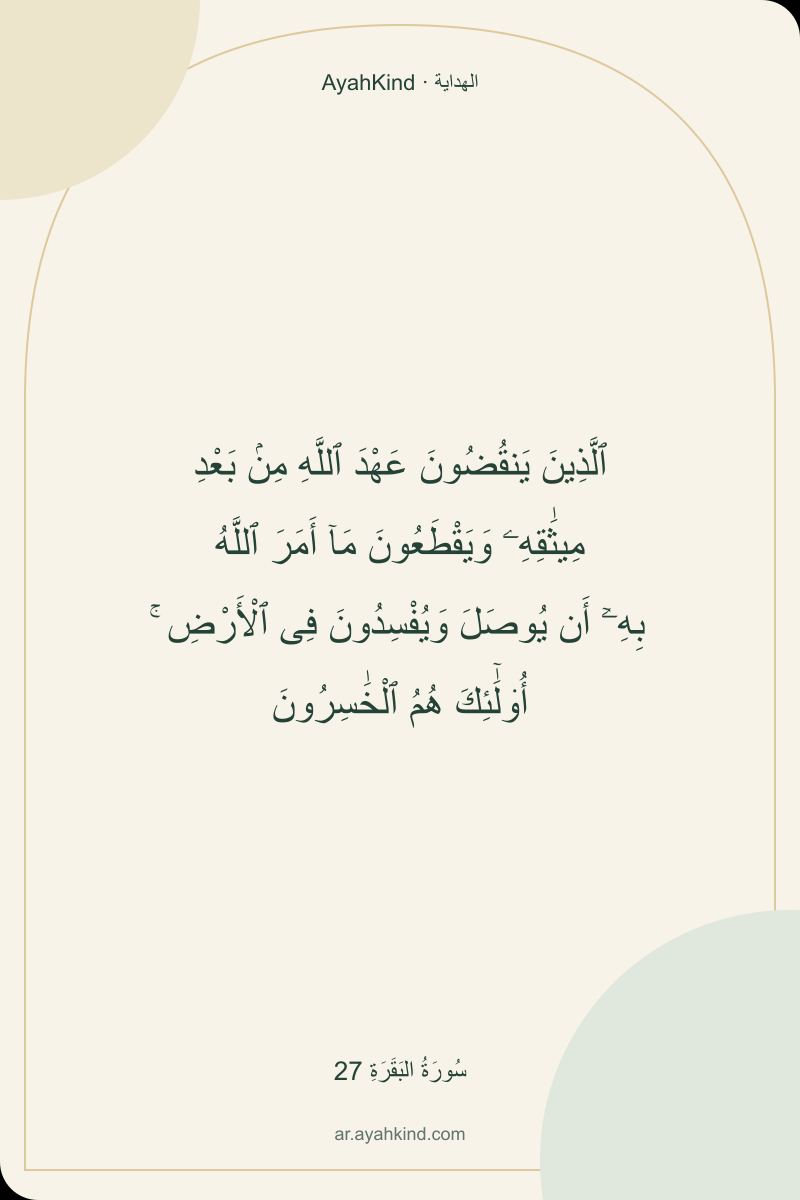 AyahKind · الهداية
ٱلَّذِينَ يَنقُضُونَ عَهْدَ ٱللَّهِ مِنۢ بَعْدِ
مِيثَٰقِهِۦ وَيَقْطَعُونَ مَآ أَمَرَ ٱللَّهُ
بِهِۦٓ أَن يُوصَلَ وَيُفْسِدُونَ فِى ٱلْأَرْضِ ۚ
أُو۟لَٰٓئِكَ هُمُ ٱلْخَٰسِرُونَ
سُورَةُ البَقَرَةِ 27
ar.ayahkind.com